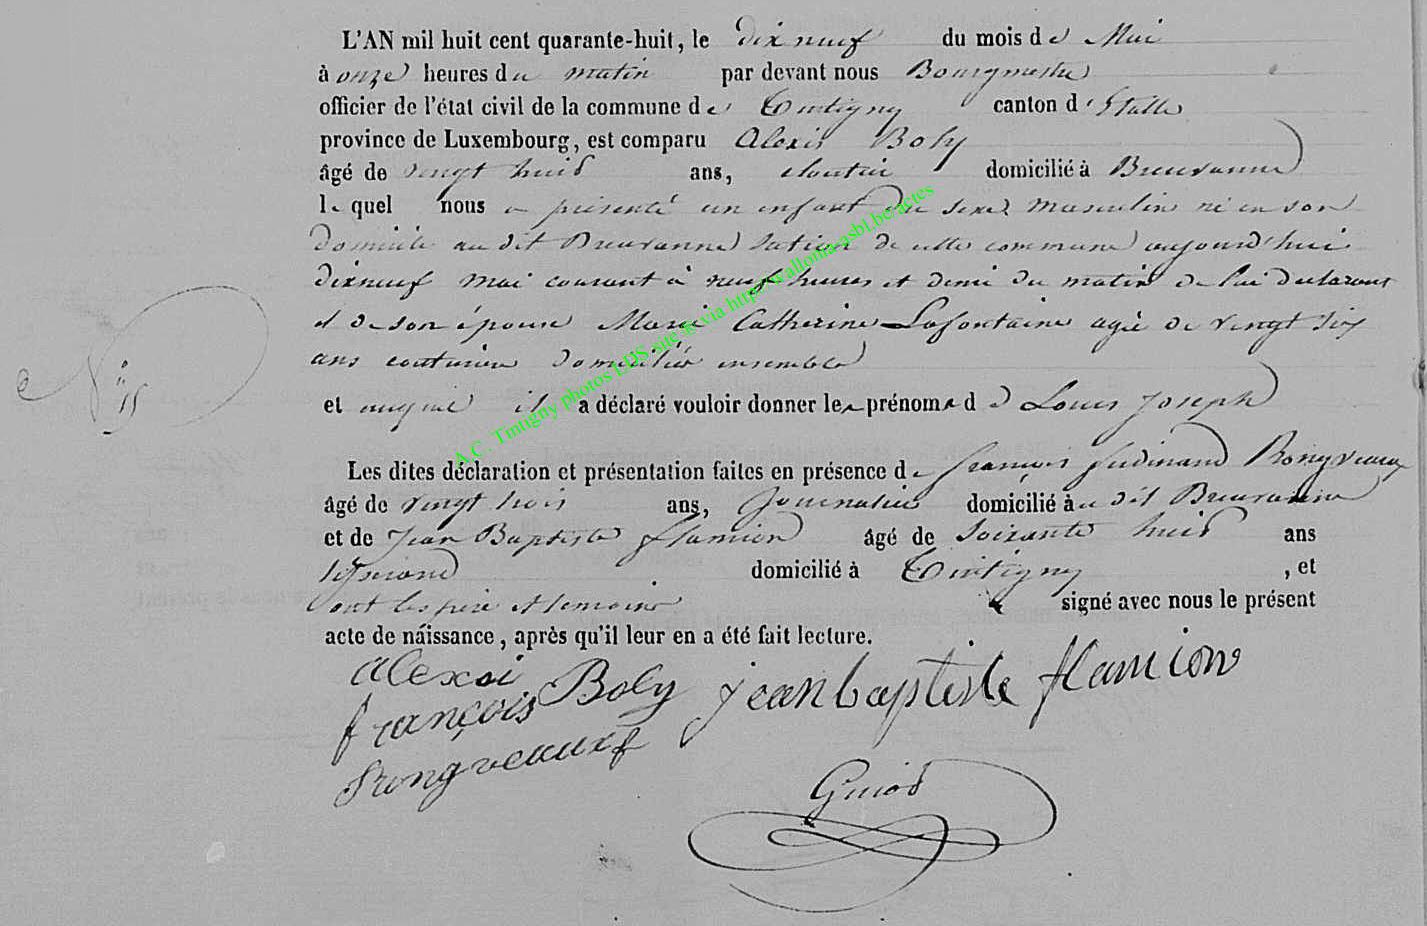 L'AN mil huit cent quarante-huit, le dix neuf du mois de Mai
à onze heures du matin par devant nous Bourgmestre
officier de l'état civil de la commune de Tintigny canton d'Etalle
province de Luxembourg, est comparu Alexis Boly
âgé de vingt huit ans, cloutier domicilié à Breuvanne
lequel nous a présenté un enfant du sexe masculin né en son
domicile au dit Breuvanne section de cette commune aujourd'hui
dixneuf mai courant à neuf heures et demi du matin de lui déclarant
et de son épouse Marie Catherine Lafontaine agée de vingt six
ans couturière domiciliés ensemble
N° 15
et auquel il a déclaré vouloir donner les prénoms de Louis Joseph
Les dites déclaration et présentation faites en présence de François Ferdinand Rongveaux
âgé de vingt trois ans, Journalier domicilié à au dit Breuvanne
et de Jean Baptiste flamion âgé de soixante huit ans
domicilié à Tintigny , et
ont les père et témoins signé avec nous le présent
acte de naissance, après qu'il leur en a été fait lecture.
alexsi Boly jean baptiste flamion
françois
Rongveauxf
Guiot
A.C. Tintigny photos LDS site & via http://wallonia-asbl.be/actes